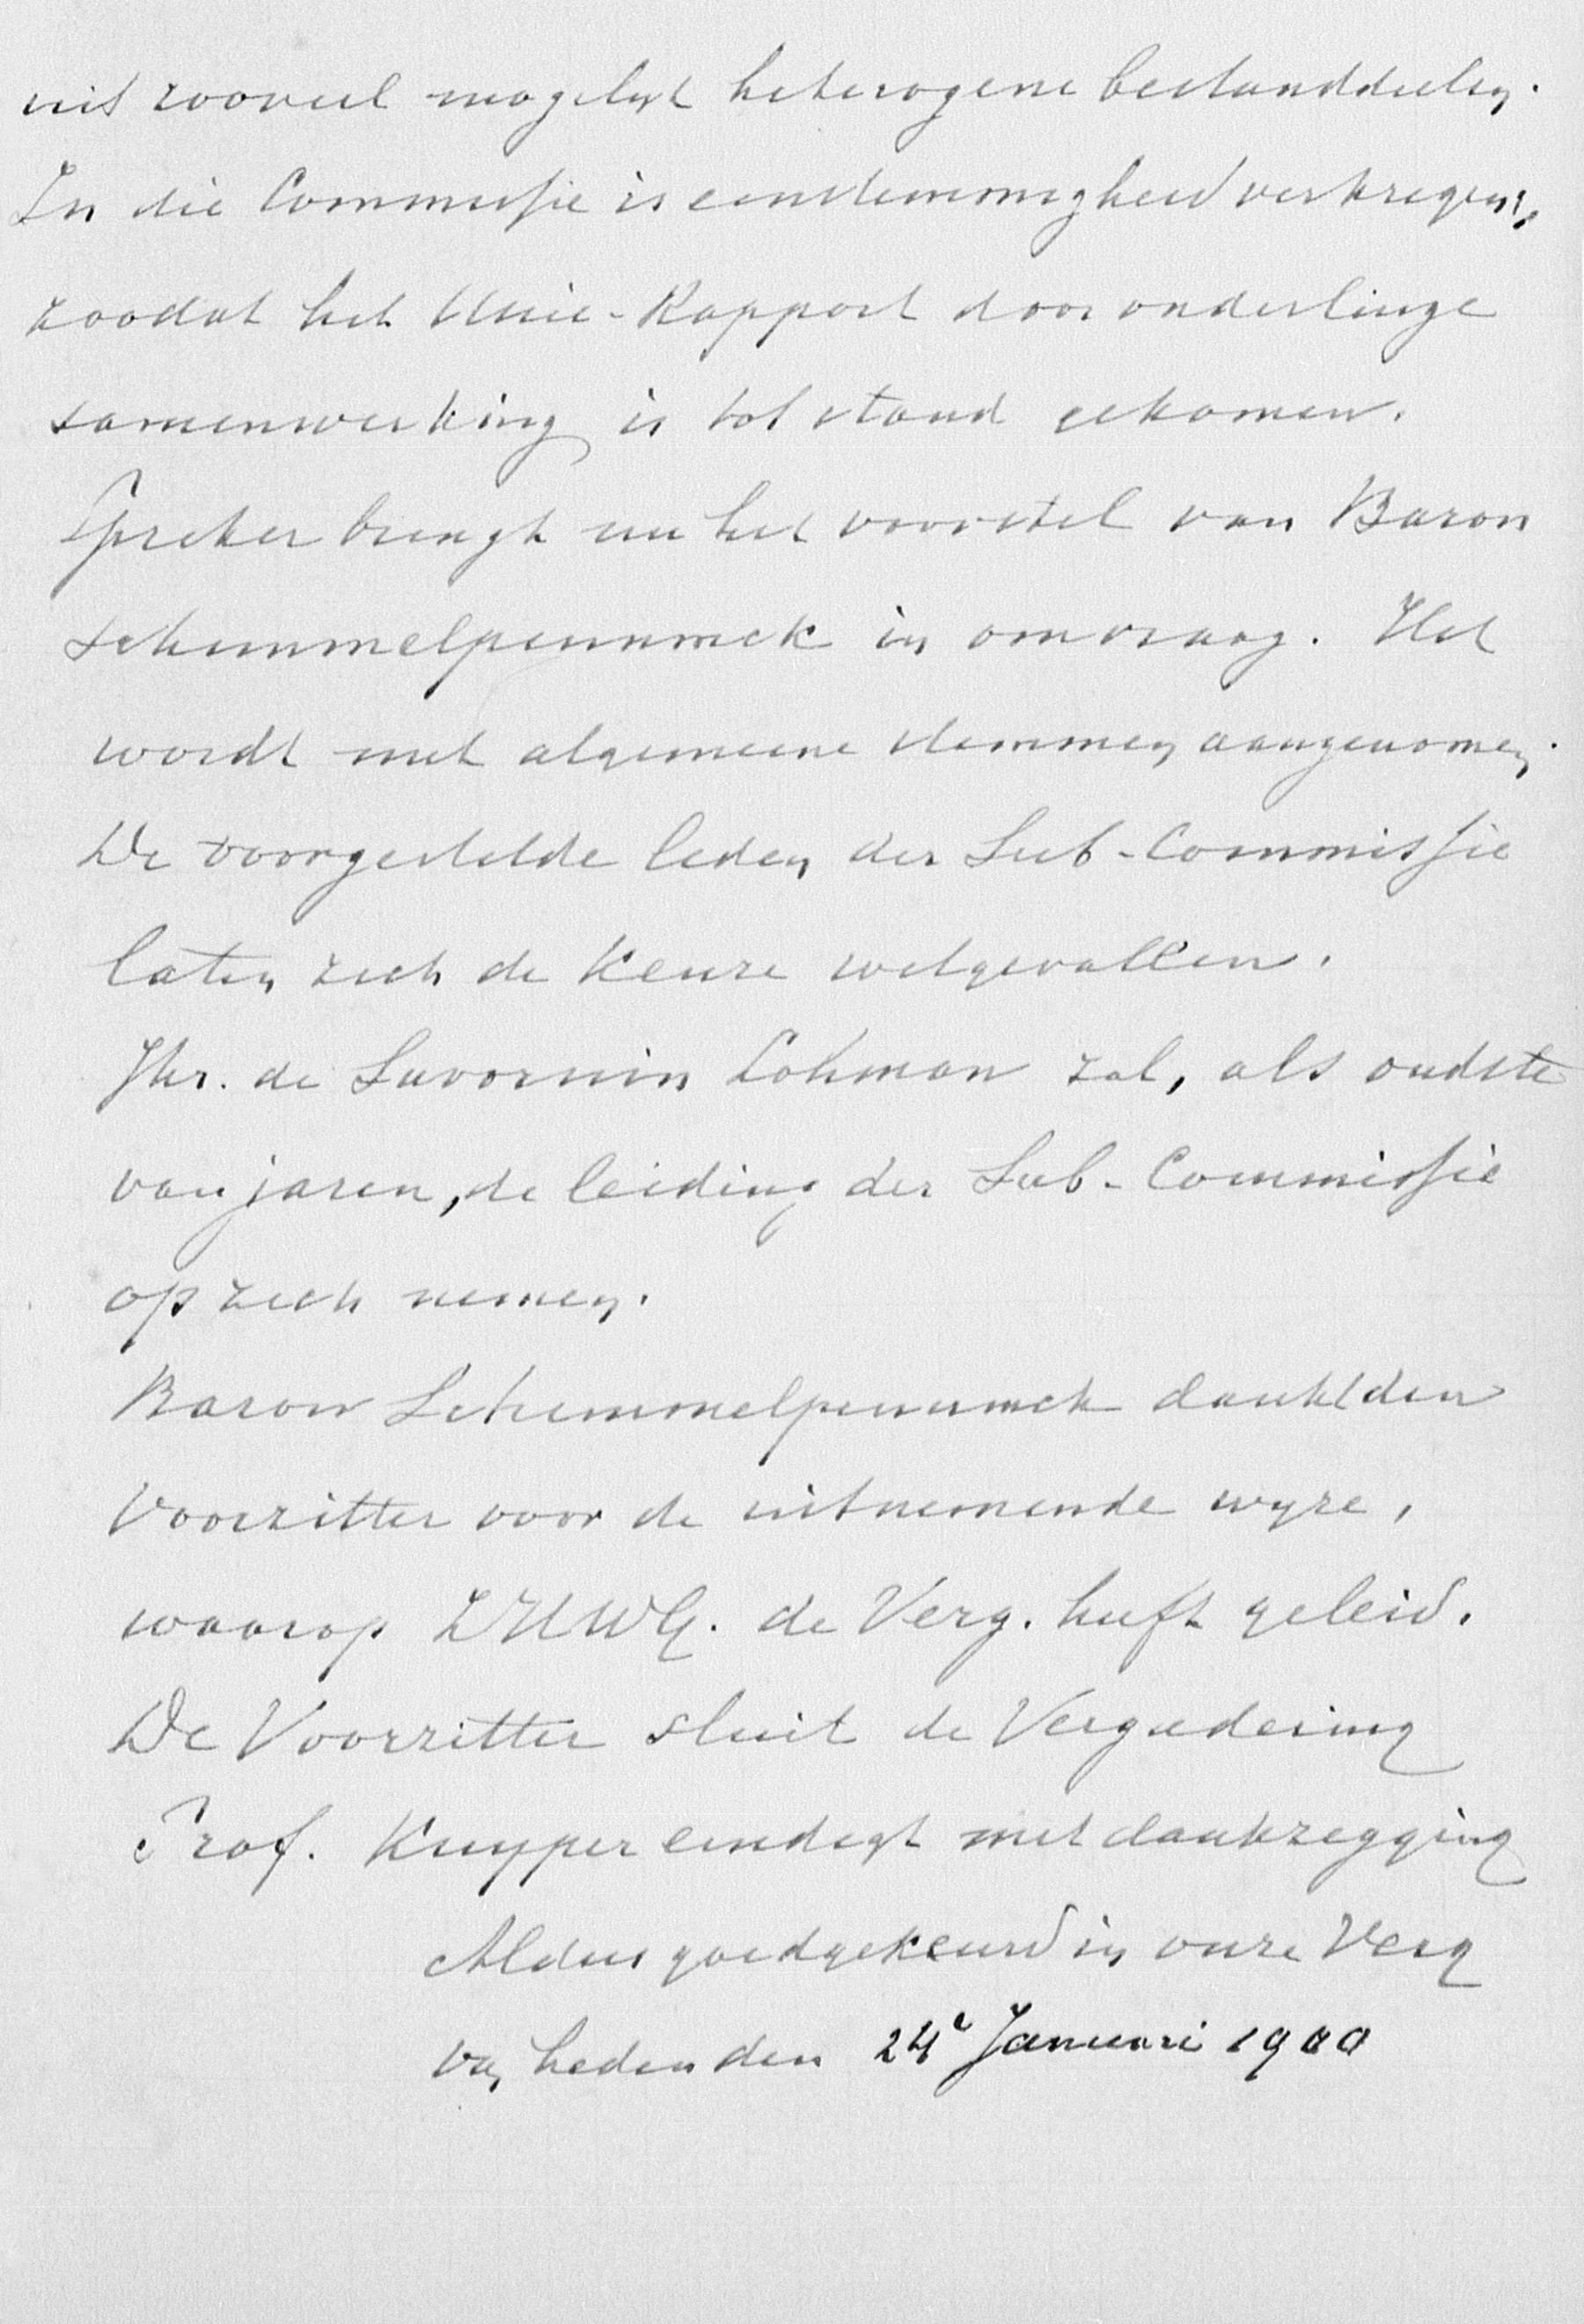 uit zooveel mogelyk heterogene bestanddeelen.
In die Commissie is eenstemmigheid verkregen,
zoodat het Unie-Rapport door onderlinge
samenwerking is tot stand gekomen.
Spreker brengt nu het voorstel van Baron
Schimmelpenninck in omvraag. Het
wordt met algemeene stemmen aangenomen.
De voorgestelde leden der Sub-Commissie
laten zich de keuze welgevallen.
Jhr. de Savornin Lohman zal, als oudste
van jaren, de leiding der Sub-Commissie
op zich nemen.
Baron Schimmelpenninck dankt den
Voorzitter voor de uitnemende wyze,
waarop ZHWG. de Verg. heeft geleid.
De Voorzitter sluit de Vergadering
Prof. Kuyper eindigt met dankzegging
Aldus goedgekeurd in onze Verg
van heden den 24e Januari 1900